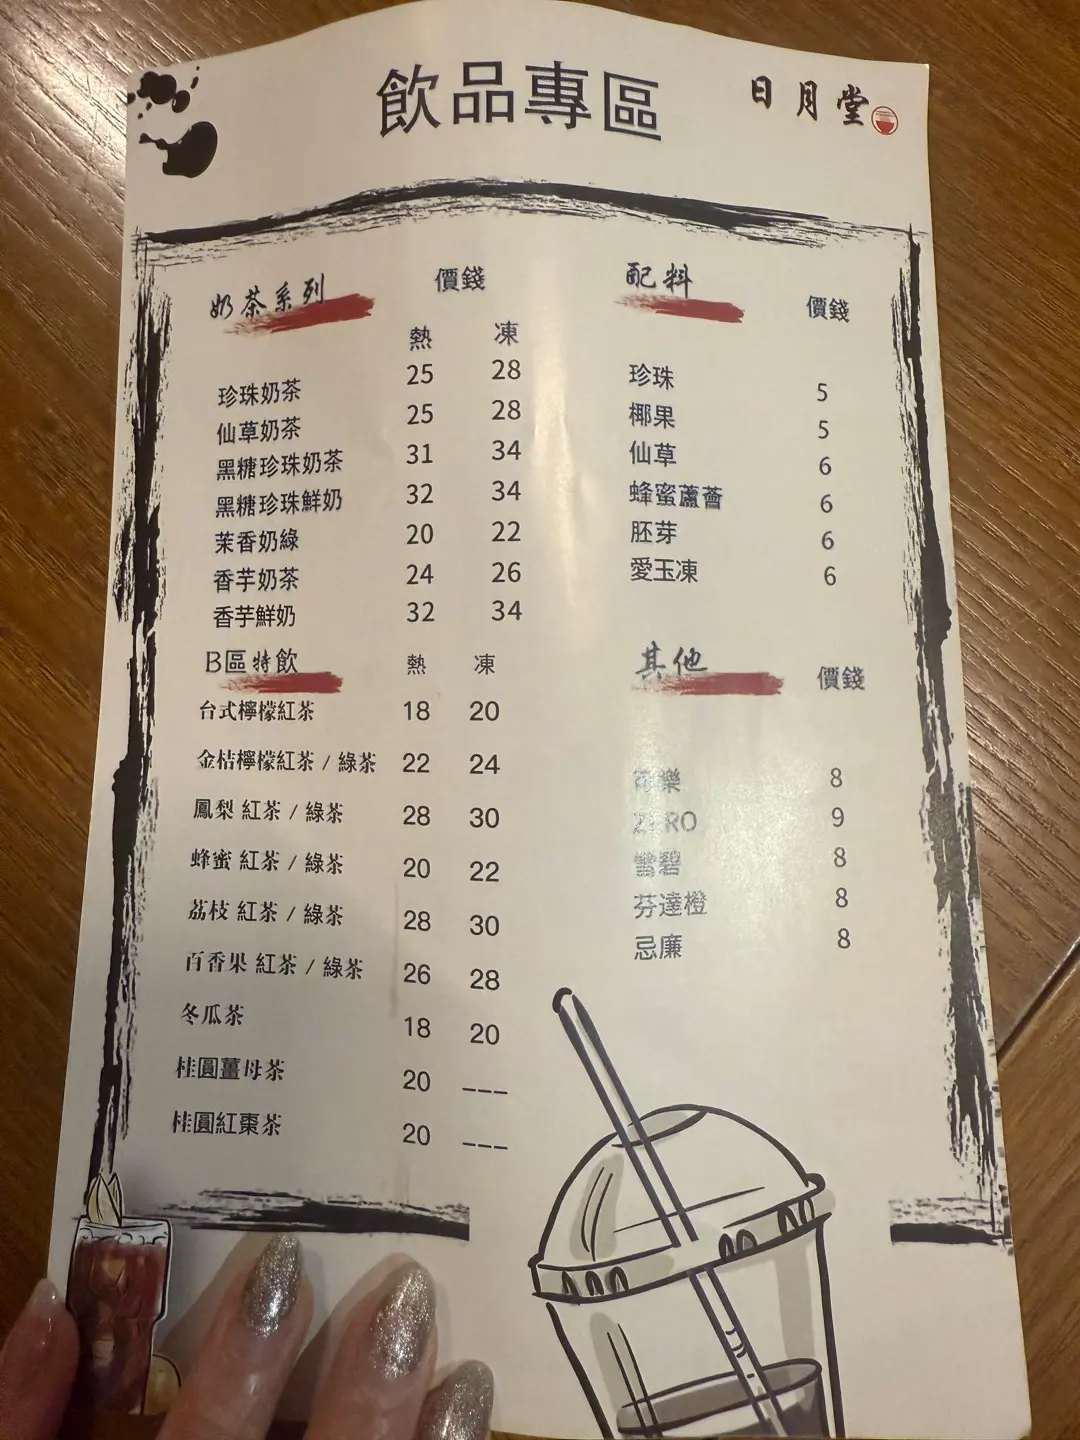 飲品專區
日月堂
奶茶系列 價錢
熱 凍
珍珠奶茶 25 28
仙草奶茶 25 28
黑糖珍珠奶茶 31 34
黑糖珍珠鮮奶 32 34
茉香奶綠 20 22
香芋奶茶 24 26
香芋鮮奶 32 34
B區特飲 熱 凍
台式檸檬紅茶 18 20
金桔檸檬紅茶 / 綠茶 22 24
鳳梨 紅茶 / 綠茶 28 30
蜂蜜 紅茶 / 綠茶 20 22
荔枝 紅茶 / 綠茶 28 30
百香果 紅茶 / 綠茶 26 28
冬瓜茶 18 20
桂圓薑母茶 20 ---
桂圓紅棗茶 20 ---
配料 價錢
珍珠 5
椰果 5
仙草 6
蜂蜜蘆薈 6
胚芽 6
愛玉凍 6
其他 價錢
可樂 8
ZERO 9
雪碧 8
芬達橙 8
忌廉 8